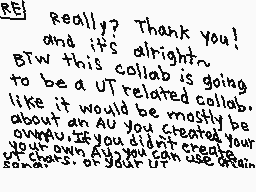 RE
Really? Thank you!
and it's alright~
BTW this collab is going
to be a UT related collab.
like it would be mostly be
about an AU you created your
own AU. If you didn't create
your own AU, you can use
UT chars. or your UT